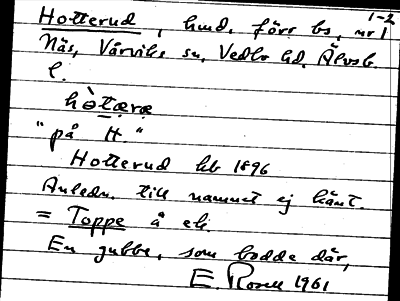 1-2
Hotterud, hmd, förr bs, nr 1
Näs, Vårviks sn, Vedbo hd, Älvsb.
l.
hòtæræ
"på H."
Hotterud hb 1896
Anledn. till namnet ej känt.
= Toppe å ek.
En gubbe, som bodde där,
E. Rosell 1961